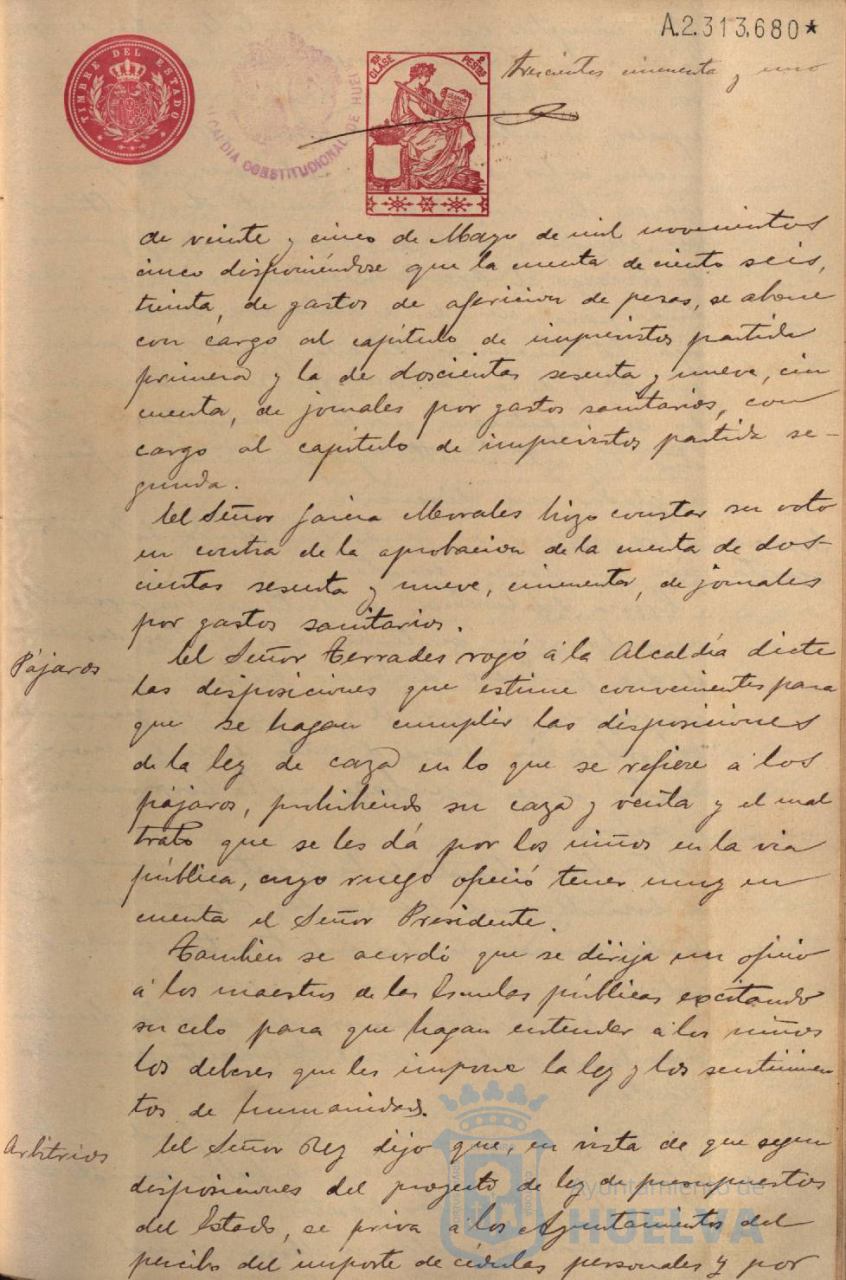 A.2.313,680*
TIMBRE DEL ESTADO
ALCALDÍA CONSTITUCIONAL DE HUELVA
CLASE
PESETAS
trescientos cincuenta y uno
de veinte y cinco de Mayo de mil novecientos
cinco disponiéndose que la cuenta de ciento seis,
treinta, de gastos de aferición de pesas, se abone
con cargo al capítulo de imprevistos partida
primera y la de doscientas sesenta y nueve, cin
cuenta, de jornales por gastos sanitarios, con
cargo al capítulo de imprevistos partida se-
gunda.
El Señor García Morales hizo constar su voto
en contra de la aprobacion de la cuenta de dos-
cientas sesenta y nueve, cincuenta, de jornales
por gastos sanitarios.
Pájaros
El Señor Terrades rogó á la Alcaldía dicte
las disposiciones que estime convenientes para
que se hagan cumplir las disposiciones
de la ley de caza en lo que se refiere á los
pájaros, prohibiendo su caza y venta y el mal
trato que se les dá por los niños en la via
pública, cuyo ruego ofreció tener muy en
cuenta el Señor Presidente.
Tambien se acordó que se dirija un oficio
á los maestros de las Escuelas públicas excitando
su celo para que hagan entender á los niños
los deberes que les impone la ley y los sentimien
tos de humanidad.
Arbitrios
El Señor Rey dijo que, en vista de que segun
disposiciones del proyecto de ley de presupuestos
del Estado, se priva á los Ayuntamientos del
percibo del importe de cédulas personales y por
Ayuntamiento de
HUELVA